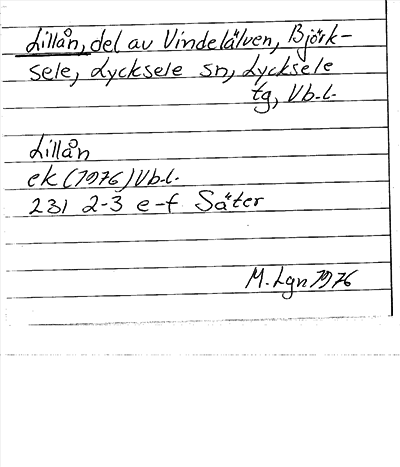 Lillån, del av Vindelälven, Björk-
sele, Lycksele sn, Lycksele
tg, Vb.l.
Lillån
ek (1976) Vb.l.
231 2-3 e-f Säter
M. Lgn 1976